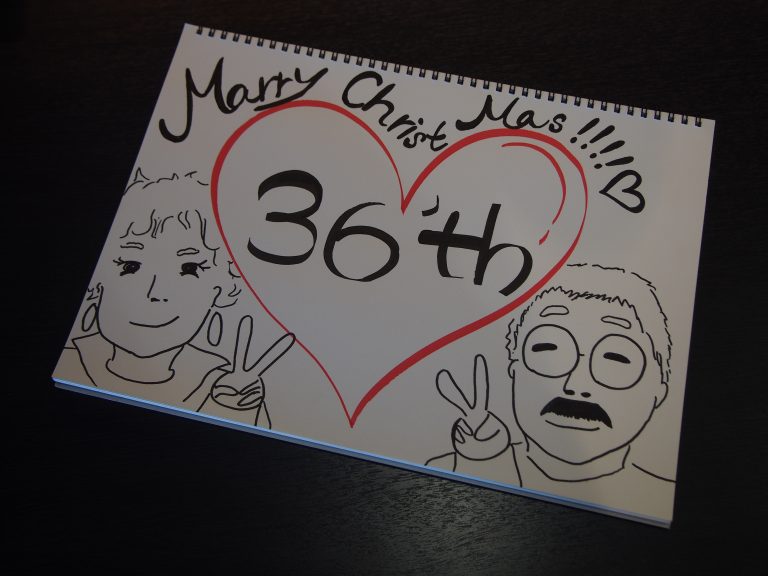 Marry Christ Mas!!!!♡
36'th